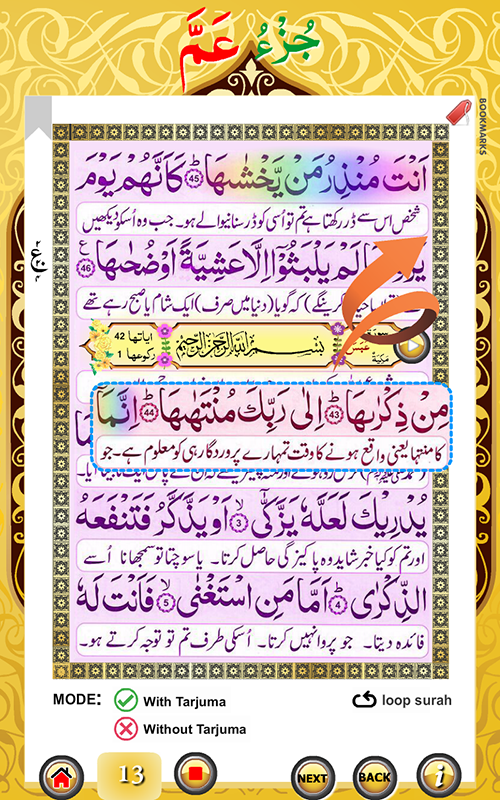 جُزْءُ عَمَّ
BOOKMARKS
اَنْتَ مُنْذِرُ مَنْ يَّخْشٰىهَا ﴿45﴾ كَاَنَّهُمْ يَوْمَ
شخص اس سے ڈر رکھتا ہے تم تو اُسی کو ڈر سنانیوالے ہو۔ جب وہ اُسکو دیکھیں
لَمْ يَلْبَثُوْٓا اِلَّا عَشِيَّةً اَوْ ضُحٰىهَا ﴿46﴾
کہ گویا (دنیا میں صرف) ایک شام یا صبح رہے تھے
اياتها 42
ركوعها 1
بِسْمِ اللهِ الرَّحْمٰنِ الرَّحِيْمِ
عَبَسَ
مَكِّيَّة
مِنْ ذِكْرٰىهَا ﴿43﴾ اِلٰى رَبِّكَ مُنْتَهٰىهَا ﴿44﴾ اِنَّمَآ
کا منتہا یعنی واقع ہونے کا وقت تمہارے پروردگار ہی کو معلوم ہے۔ جو
يُدْرِيْكَ لَعَلَّهٗ يَزَّكّٰىٓ ﴿3﴾ اَوْ يَذَّكَّرُ فَتَنْفَعَهُ
اور تم کو کیا خبر شاید وہ پاکیزگی حاصل کرتا۔ یا سوچتا تو سمجھانا اُسے
الذِّكْرٰى ﴿4﴾ اَمَّا مَنِ اسْتَغْنٰى ﴿5﴾ فَاَنْتَ لَهٗ
فائدہ دیتا۔ جو پروا نہیں کرتا۔ اُسکی طرف تم تو توجہ کرتے ہو۔
MODE: With Tarjuma
loop surah
Without Tarjuma
13
NEXT
BACK
i